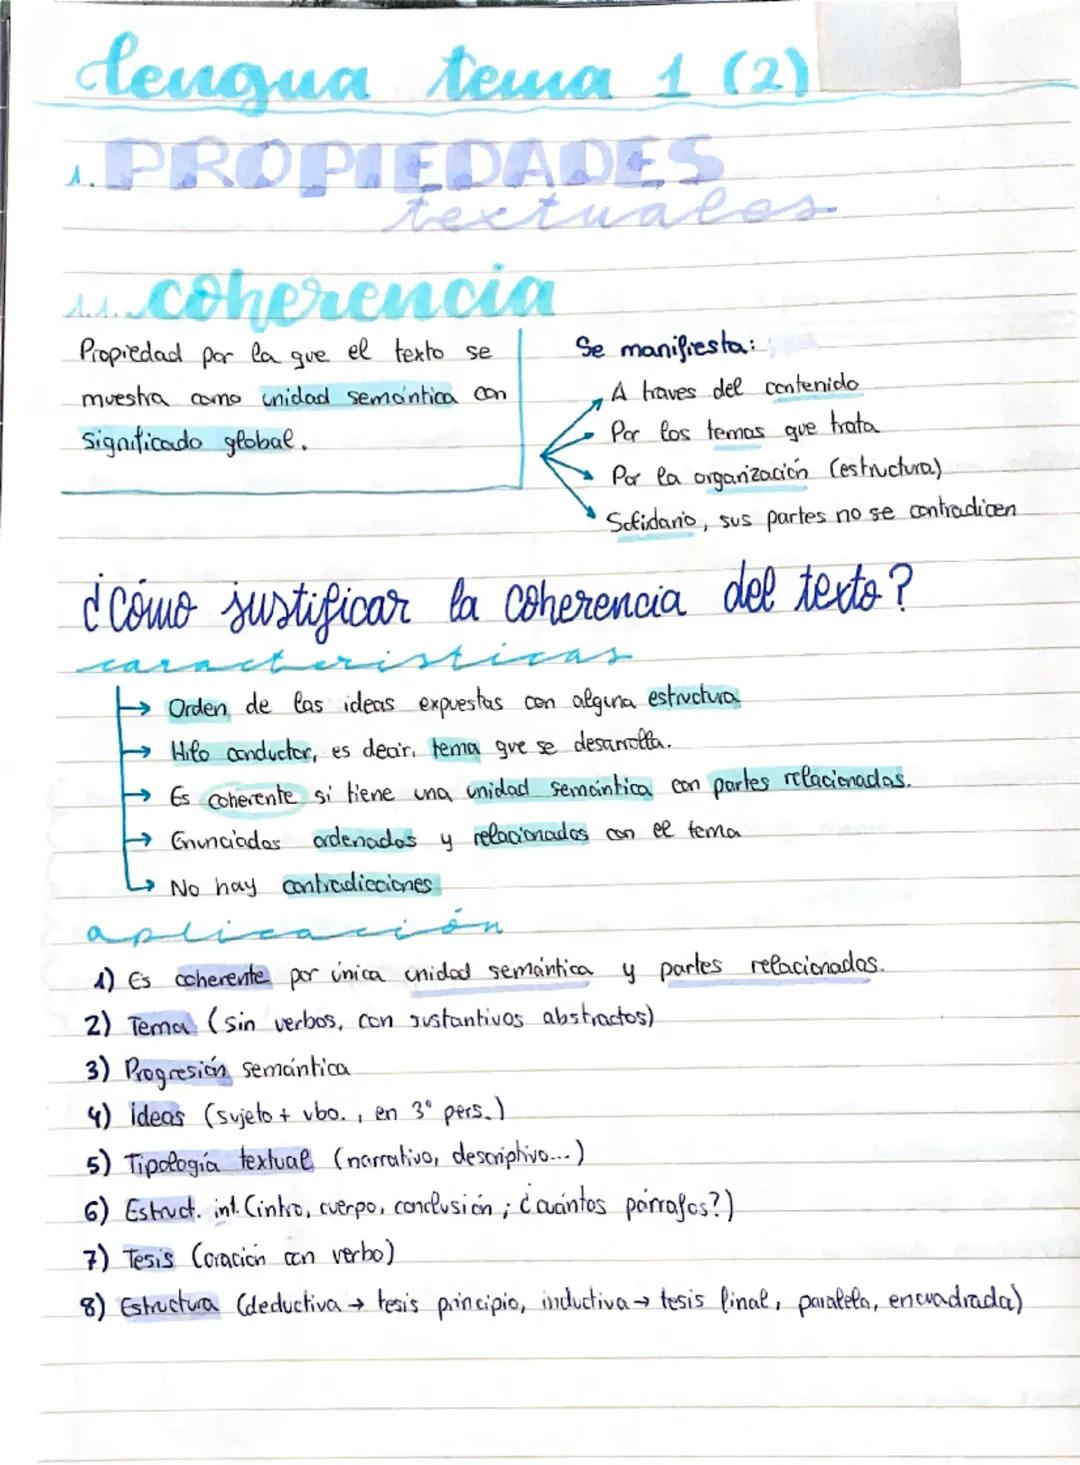 lengua tema 1 (2)
1. PROPIEDADES
textuales
1.1. coherencia
Propiedad por la que el texto se
muestra como unidad semántica con
significado global.
Se manifiesta:
A traves del contenido
Por los temas que trata
Por la organización (estructura)
Solidario, sus partes no se contradicen
¿Cómo justificar la coherencia del texto?
caracteristicas
→ Orden de las ideas expuestas con alguna estructura
→ Hilo conductor, es decir, tema que se desarrolla.
→ Es coherente si tiene una unidad semántica con partes relacionadas.
→ Enunciados ordenados y relacionados con el tema
→ No hay contradicciones
aplicación
1) Es coherente por única unidad semántica y partes relacionadas.
2) Tema (sin verbos, con sustantivos abstractos)
3) Progresión semántica
4) ideas (sujeto + vbo., en 3º pers.)
5) Tipología textual (narrativo, descriptivo...)
6) Estruct. int. (intro, cuerpo, conclusión; ¿cuántos párrafos?)
7) Tesis (oración con verbo)
8) Estructura (deductiva → tesis principio, inductiva → tesis final, paralela, encuadrada)